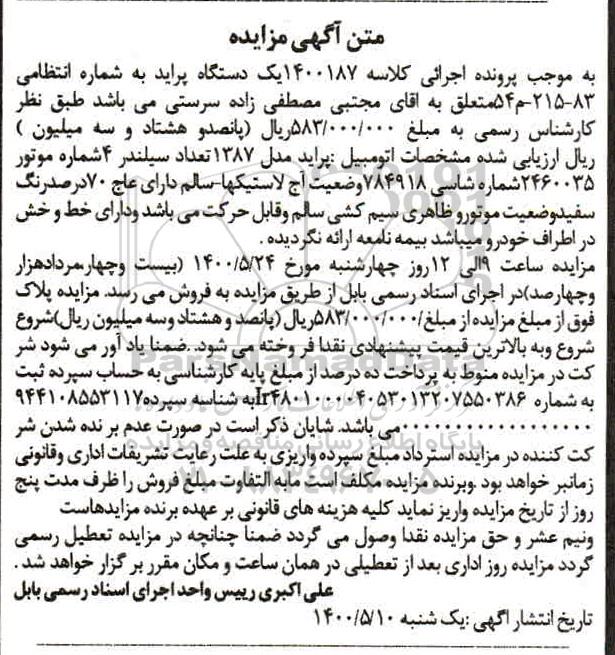 متن آگهی مزایده
به موجب پرونده اجرائی کلاسه ۱۴۰۰۱۸۷یک دستگاه پراید به شماره انتظامی
۸۳-۲۱۵-م۵۴متعلق به اقای مجتبی مصطفی زاده سرستی می باشد طبق نظر
کارشناس رسمی به مبلغ ۵۸۳/۰۰۰/۰۰۰ریال (پانصدو هشتاد و سه میلیون )
ریال ارزیابی شده مشخصات اتومبیل :پراید مدل ۱۳۸۷تعداد سیلندر ۴شماره موتور
۲۴۶۰۰۳۵شماره شاسی ۷۸۴۹۱۸وضعیت آج لاستیکها-سالم دارای عاج ۷۰درصدرنگ
سفیدوضعیت موتورو ظاهری سیم کشی سالم وقابل حرکت می باشد ودارای خط و خش
در اطراف خودرو میباشد بیمه نامعه ارائه نگردیده .
مزایده ساعت ۹الی ۱۲روز چهارشنبه مورخ ۱۴۰۰/۵/۲۴ (بیست وچهارمردادهزار
وچهارصد)در اجرای اسناد رسمی بابل از طریق مزایده به فروش می رسد. مزایده پلاک
فوق از مبلغ مزایده از مبلغ/۵۸۳/۰۰۰/۰۰۰ریال (پانصد و هشتاد وسه میلیون ریال)شروع
شروع وبه بالاترین قیمت پیشنهادی نقدا فر وخته می شود .ضمنا یاد آور می شود شر
کت در مزایده منوط به پرداخت ده درصد از مبلغ پایه کارشناسی به حساب سپرده ثبت
به شماره Ir۴۸۰۱۰۰۰۰۴۰۵۳۰۱۳۲۰۷۵۵۰۳۸۶به شناسه سپرده۹۴۴۱۰۸۵۵۳۱۱۷
۰۰۰۰۰۰۰۰۰۰۰۰۰۰۰۰۰۰می باشد. شایان ذکر است در صورت عدم بر نده شدن شر
کت کننده در مزایده استرداد مبلغ سپرده واریزی به علت رعایت تشریفات اداری وقانونی
زمانبر خواهد بود .وبرنده مزایده مکلف است مابه التفاوت مبلغ فروش را ظرف مدت پنج
روز از تاریخ مزایده واریز نماید کلیه هزینه های قانونی بر عهده برنده مزایدهاست
ونیم عشر و حق مزایده نقدا وصول می گردد ضمنا چنانچه در مزایده تعطیل رسمی
گردد مزایده روز اداری بعد از تعطیلی در همان ساعت و مکان مقرر بر گزار خواهد شد .
علی اکبری رییس واحد اجرای اسناد رسمی بابل
تاریخ انتشار اگهی :یک شنبه ۱۴۰۰/۵/۱۰